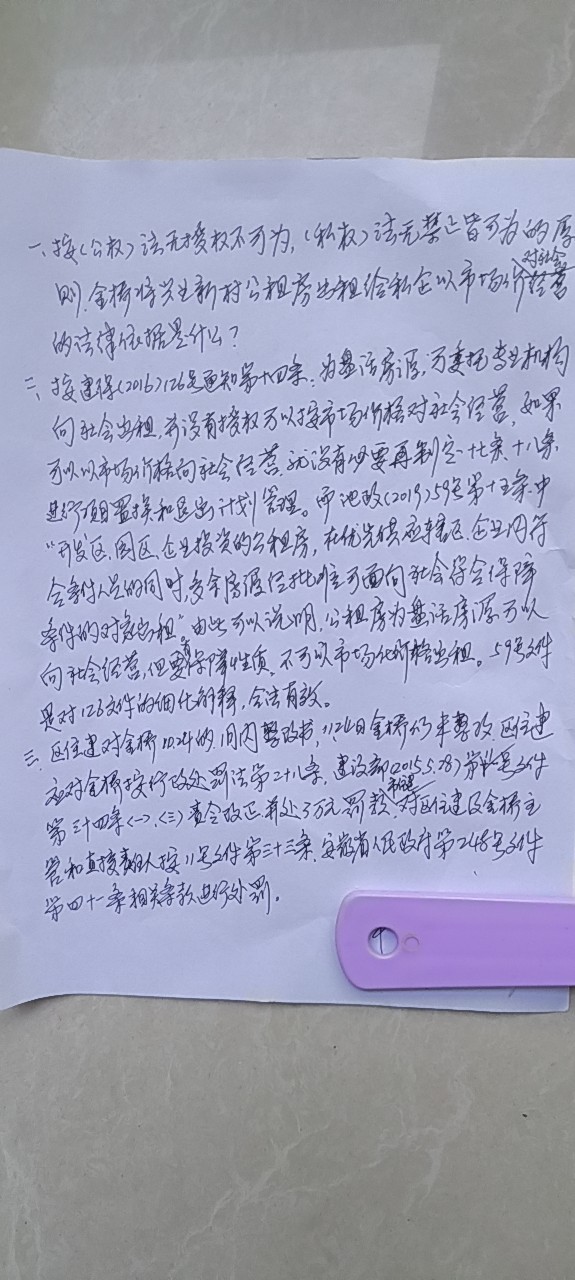 一、按(公权)法无授权不可为,(私权)法无禁止皆可为的原
则,金桥将共生新村公租房出租给私企以市场价对社会经营
的法律依据是什么?
二、按建保(2016)126号通知第十四条:为盘活房源,可委托专业机构
向社会出租,并没有授权可以按市场价格对社会经营,如果
可以以市场价格向社会经营,就没有必要再制定十七条、十八条
进行项目置换和退出计划管理。而池政(2019)59号第十五条中
“开发区、园区、企业投资的公租房,在优先供应辖区、企业内符
合条件人员的同时,多余房源经批准可面向社会符合保障
条件的对象出租”由此可以说明,公租房为盘活房源可以
向社会经营,但要有保障性质,不可以市场化价格出租。59号文件
是对126文件的细化解释,合法有效。
三、区住建对金桥10.24的1月内整改书,11.24日金桥仍未整改,区住建
应对金桥按行政处罚法第二十八条,建设部(2015.5.28)第11号文件
第三十四条〈一〉、〈三〉责令改正,并处3万元罚款,市住建对区住建及金桥主
管和直接责任人按11号文件第三十三条,安徽省人民政府第248号文件
第四十一条相关条款进行处罚。